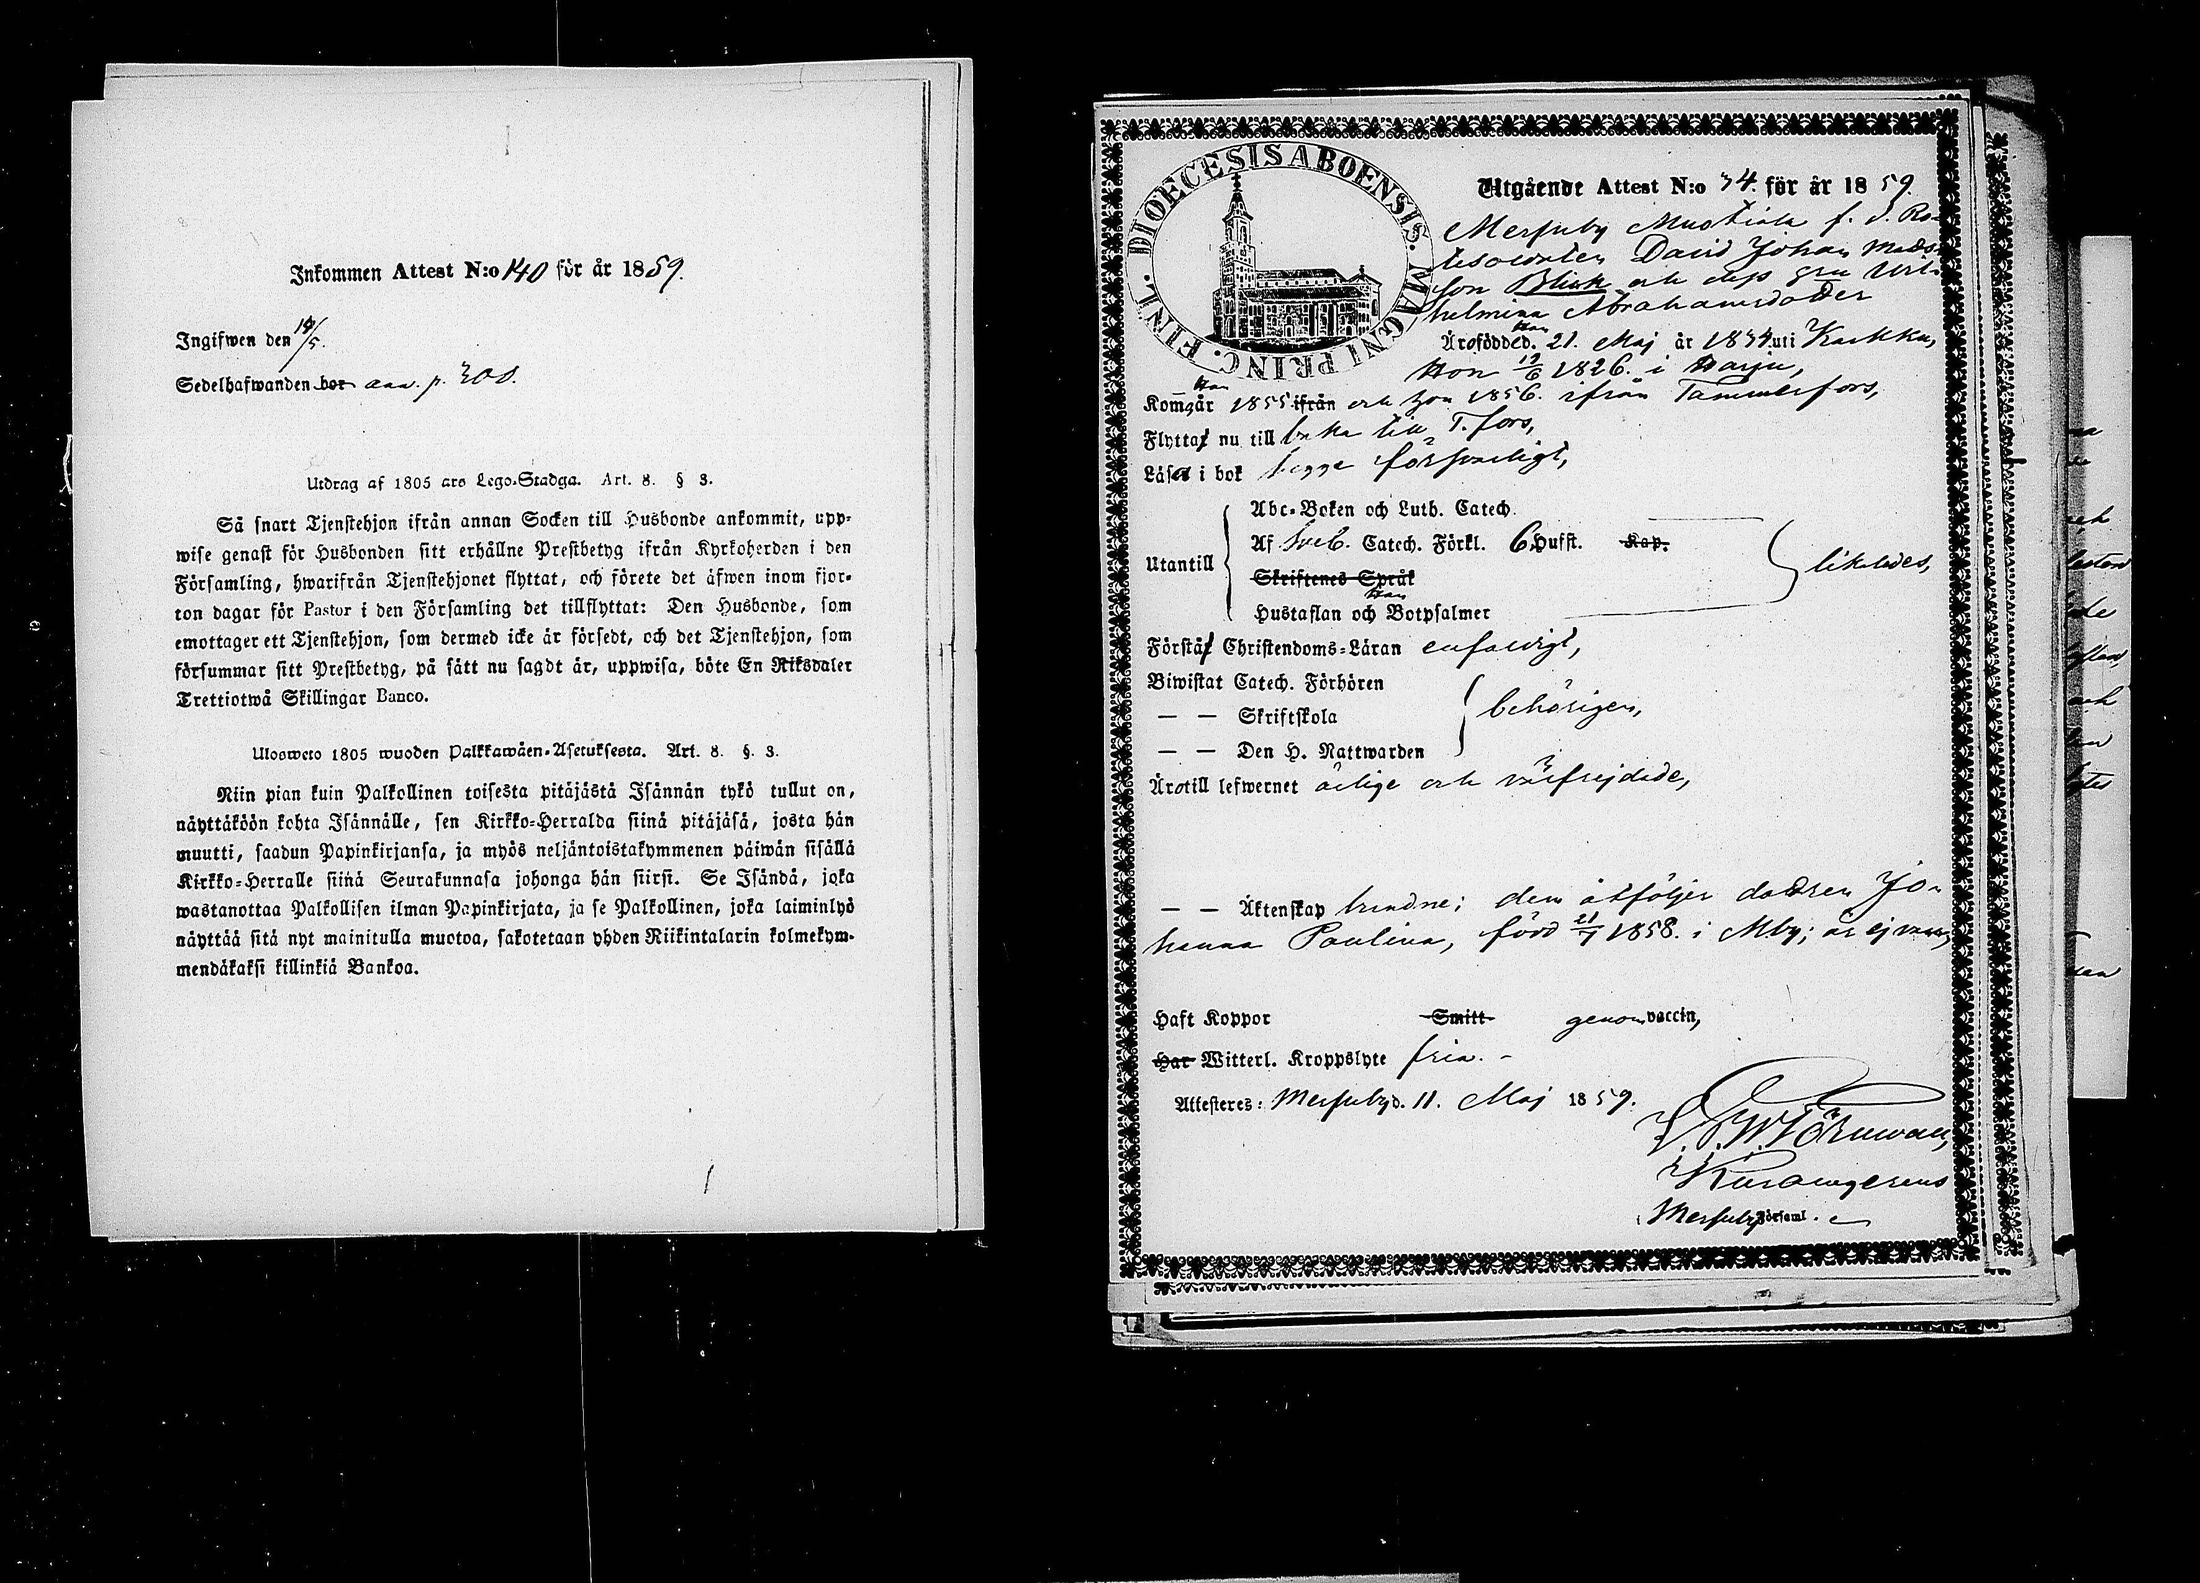 Inkommen Attest N:o 140 för år 1859.
Ingifwen den 19/5.
Sedelhafwanden bor ann. p. 308.
Utdrag af 1805 års Lego-Stadga. Art. 8. § 3.
Så snart Tjenstehjon ifrån annan Socken till Husbonde ankommit, upp-
wise genast för Husbonden sitt erhållne Prestbetyg ifrån Kyrkoherden i den
Församling, hwarifrån Tjenstehjonet flyttat, och förete det äfwen inom fjor-
ton dagar för Pastor i den Församling det tillflyttat: Den Husbonde, som
emottager ett Tjenstehjon, som dermed icke är försedt, och det Tjenstehjon, som
försummar sitt Prestbetyg, på sätt nu sagdt är, uppwisa, böte En Riksdaler
Trettiotwå Skillingar Banco.
Ulosweto 1805 wuoden Palkkawäen-Asetuksesta. Art. 8. §. 3.
Niin pian kuin Palkollinen toisesta pitäjästä Isännän tykö tullut on,
näyttäköön kohta Isännälle, sen Kirkko-Herralda siinä pitäjäsä, josta hän
muutti, saadun Papinkirjansa, ja myös neljäntoistakymmenen päiwän sisällä
Kirkko-Herralle siinä Seurakunnasa johonga hän siirsi. Se Isändä, joka
wastanottaa Palkollisen ilman Papinkirjata, ja se Palkollinen, joka laiminlyö
näyttää sitä nyt mainitulla muotoa, sakotetaan yhden Riikintalarin kolmekym-
mendäkaksi killinkiä Bankoa.
DIOECESIS ABOENSIS. MAGNI PRINC. FINL.
Utgående Attest N:o 34. för år 1859.
Messuby Mustiala f. d. Ro-
tesoldaten David Johan Mads-
son Blink och dess hu Wil-
helmina Abrahamsdotter
Äro född Han d. 21. Maj år 1834 uti Karkku,
Hon 12/6 1826. i Harju,
Kom Han år 1855 ifrån och hon 1856. ifrån Tammerfors,
Flytta nu till baka till T.fors,
Läsa i bok begge försvarligt,
Utantill
Abc-Boken och Luth. Catech.
Af Sveb. Catech. Förkl. 6 Hufst. Kap.
Skriftenes Språk
Han
Hustaflan och Botpsalmer
likaledes,
Förstå Christendoms-Läran enfaldigt,
Biwistat Catech. Förhören
— — Skriftskola
— — Den H. Nattwarden
behörigen,
Äro till lefwernet ärlige och välfrejdade,
— — Äktenskap bundne; dem åtföljer dottren Jo-
hanna Paulina, född 21/7 1858. i Mby; är ej vacc,
Haft Koppor Smitt genom vaccin,
Har Witterl. Kroppslyte fria. -
Attesteres: Messuby d. 11. Maj 1859.
Törnwall,
Messuby Församl.